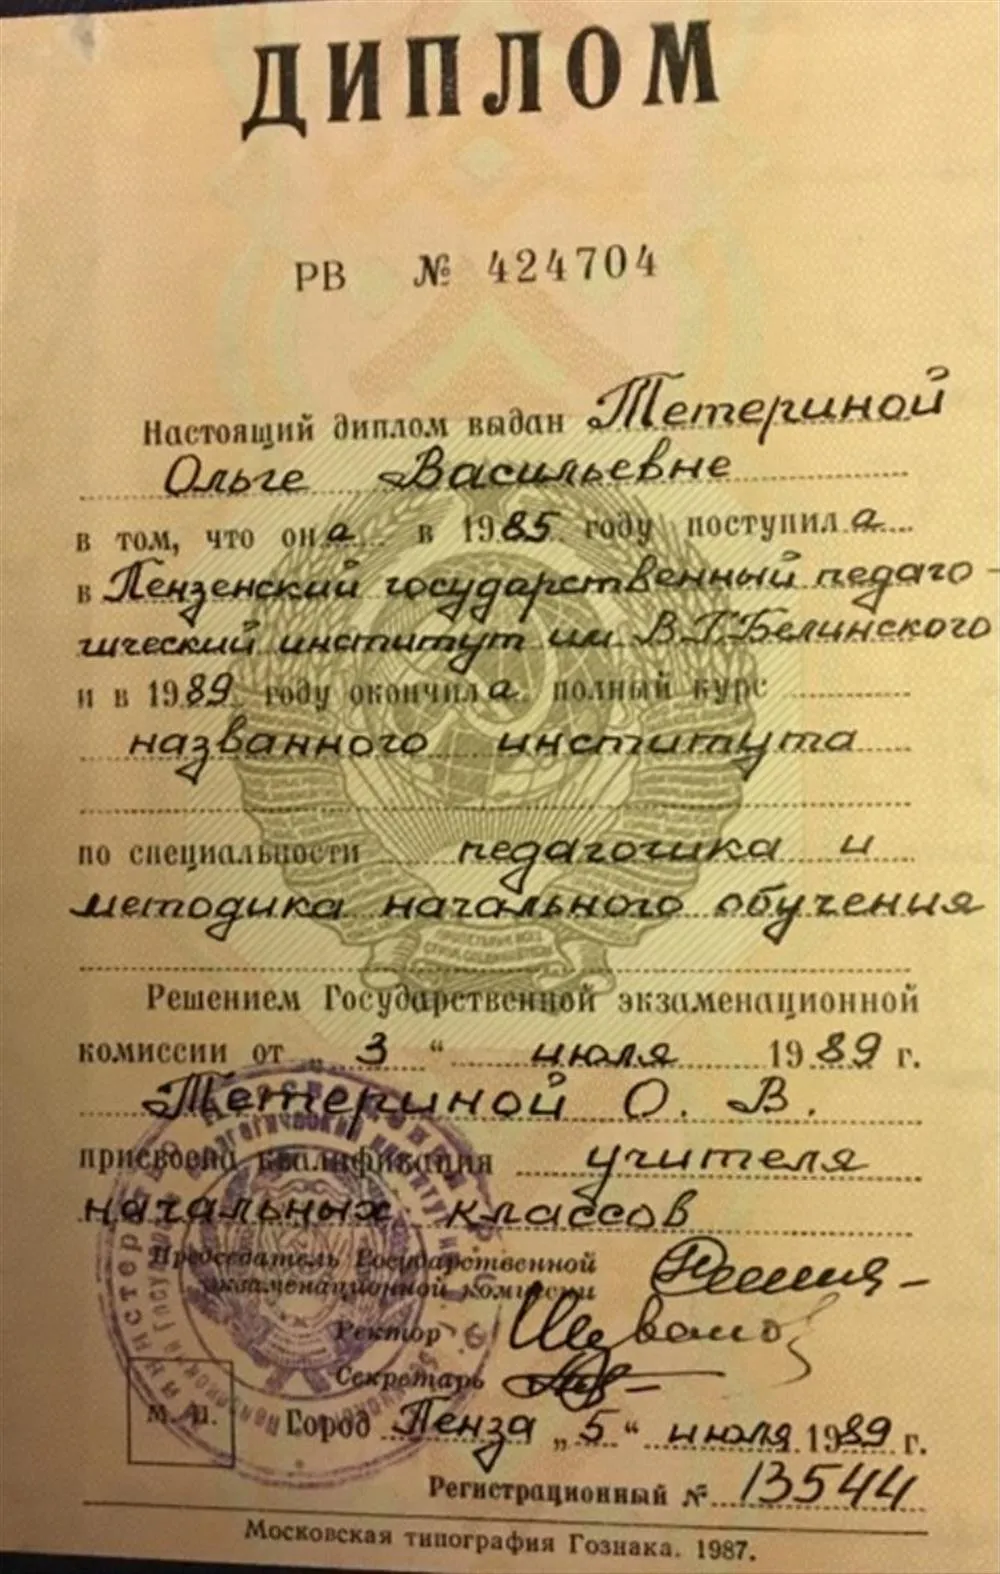 ДИПЛОМ
РВ № 424704
Настоящий диплом выдан Тетериной
Ольге Васильевне
в том, что она в 1985 году поступила
в Пензенский государственный педаго-
гический институт им В.Г.Белинского
и в 1989 году окончила полный курс
названного института
по специальности педагогика и
методика начального обучения
Решением Государственной экзаменационной
комиссии от „ 3 “ июля 1989 г.
Тетериной О. В.
присвоена квалификация учителя
начальных классов
Председатель Государственной
экзаменационной комиссии
Ректор
Секретарь
М. П. Город Пенза „ 5 “ июля 1989 г.
Регистрационный № 13544
Московская типография Гознака. 1987.